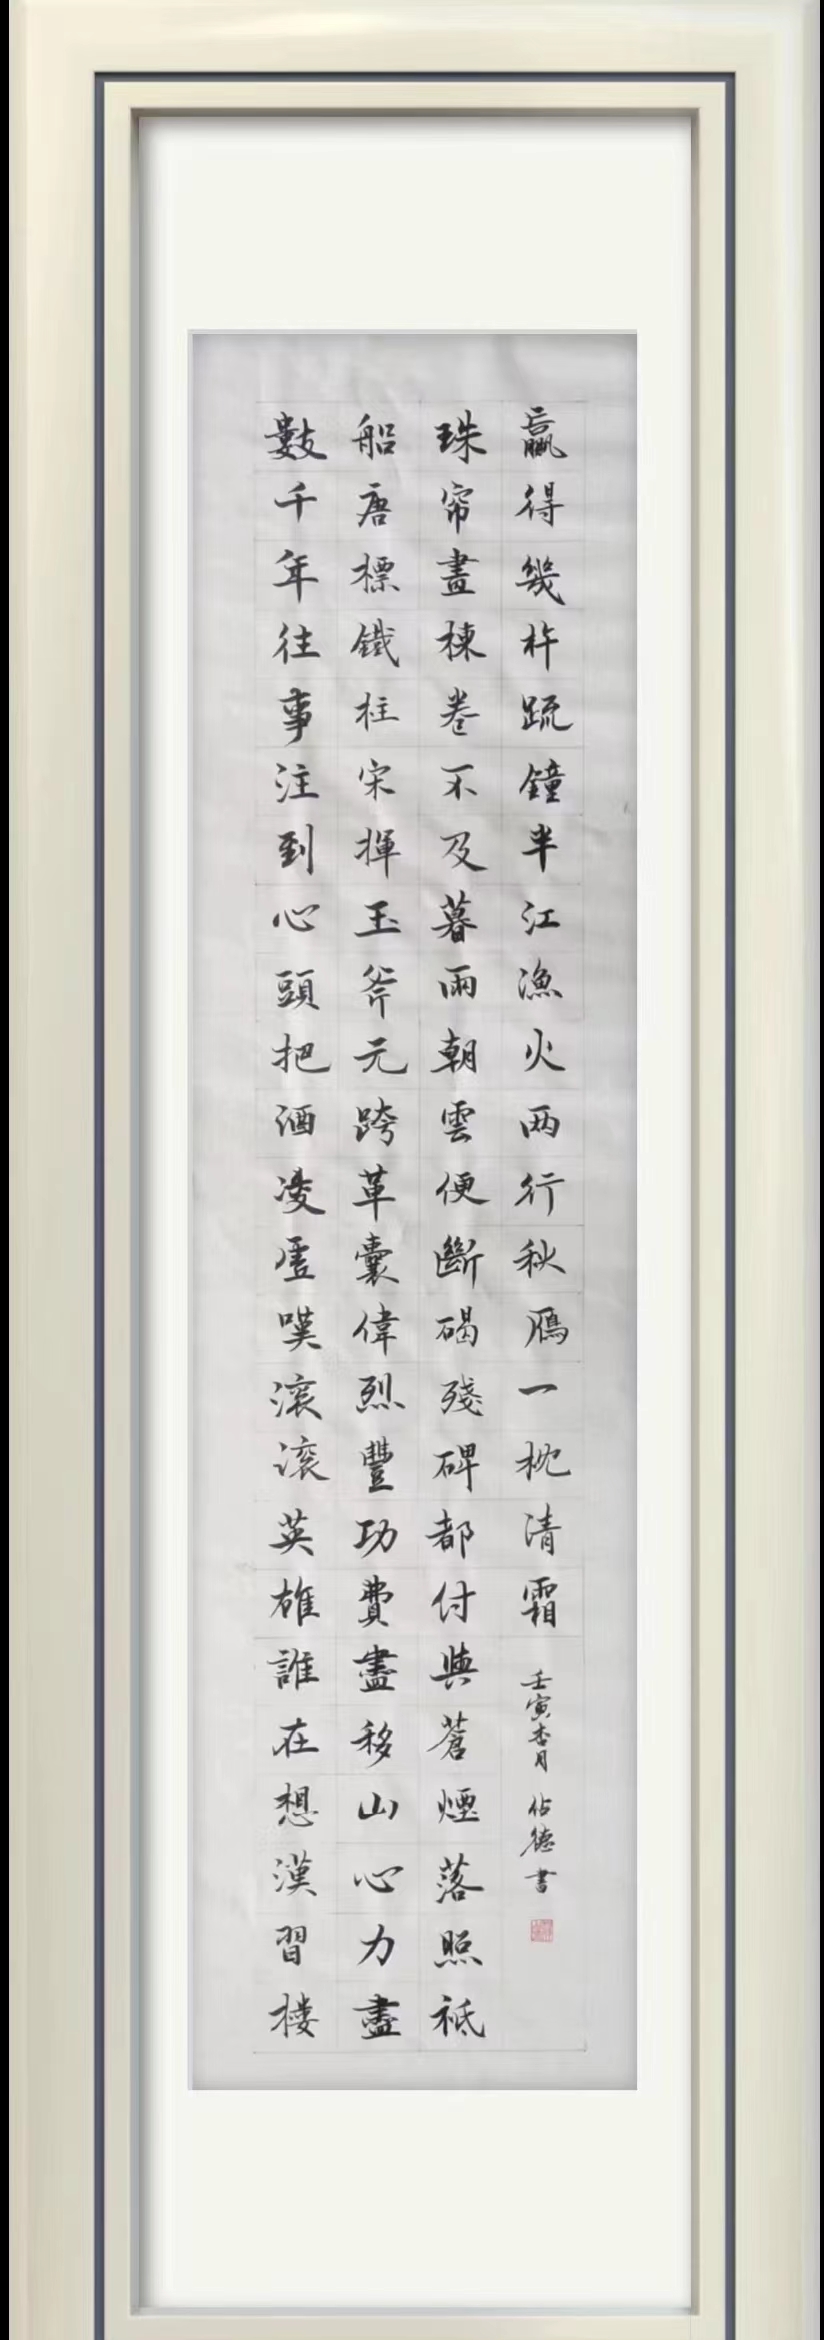 數千年往事注到心頭把酒凌虛嘆滚滚英雄誰在想漢習楼
船唐標鐵柱宋揮玉斧元跨革囊偉烈豐功費盡移山心力盡
珠帘畫棟卷不及暮雨朝雲便斷碣殘碑都付與蒼煙落照祗
贏得幾杵疏鐘半江漁火两行秋雁一枕清霜
壬寅杏月 佔德書